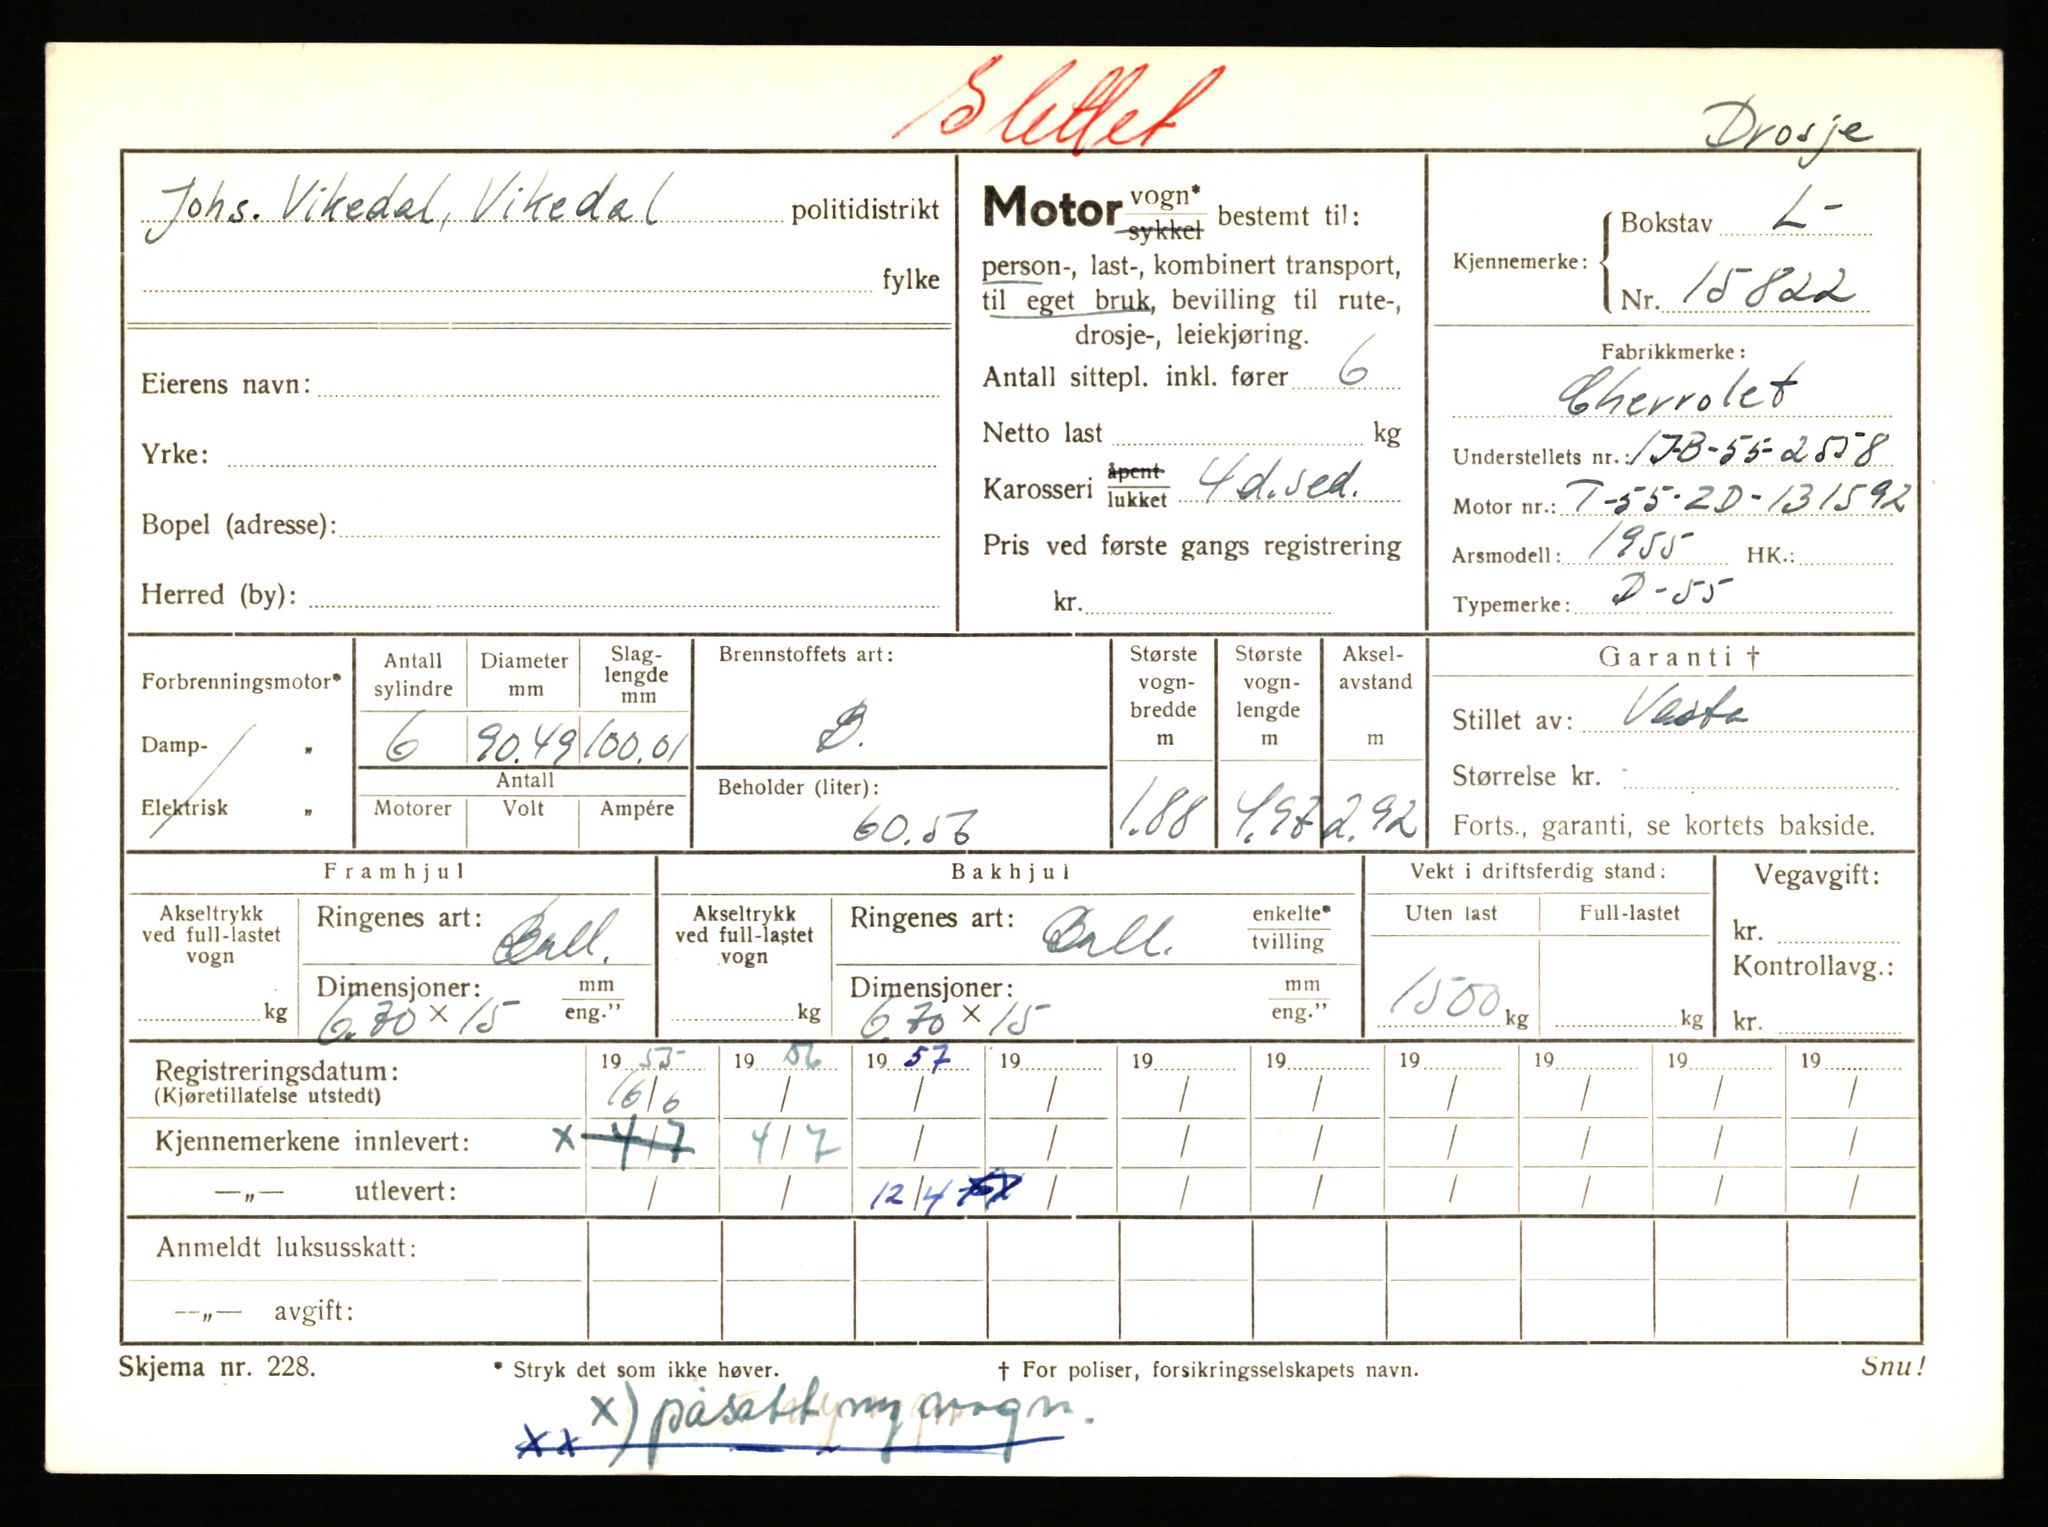 Slettet
Drosje
Johs. Vikedal, Vikedal politidistrikt
fylke
Eierens navn:
Yrke:
Bopel (adresse):
Herred (by):
Motor vogn* sykkel bestemt til:
person-, last-, kombinert transport,
til eget bruk, bevilling til rute-,
drosje-, leiekjøring.
Antall sittepl. inkl. fører 6
Netto last kg
Karosseri åpent lukket 4 d. sed.
Pris ved første gangs registrering
kr.
Kjennemerke: Bokstav L-
Nr. 15822
Fabrikkmerke:
Chevrolet
Understellets nr.: 1JB-55-2558
Motor nr.: T-55-2D-131592
Arsmodell: 1955 HK.:
Typemerke: D-55
Forbrenningsmotor*
Damp- "
Elektrisk "
Antall sylindre
Diameter mm
Slag-lengde mm
6 90.49 100.01
Antall
Motorer Volt Ampére
Brennstoffets art:
B.
Beholder (liter):
60.56
Største vogn-bredde m
1.88
Største vogn-lengde m
4.97
Aksel-avstand m
2.92
Garanti †
Stillet av: Vesta
Størrelse kr.
Forts., garanti, se kortets bakside.
Framhjul
Akseltrykk ved full-lastet vogn
kg
Ringenes art: Ball.
Dimensjoner: mm eng."
6.70 × 15
Bakhjul
Akseltrykk ved full-lastet vogn
kg
Ringenes art: Ball. enkelte* tvilling
Dimensjoner: mm eng."
6.70 × 15
Vekt i driftsferdig stand:
Uten last Full-lastet
1500 kg kg
Vegavgift:
kr.
Kontrollavg.:
kr.
Registreringsdatum: 19 55 19 56 19 57 19 19 19 19 19 19 19
(Kjøretillatelse utstedt) 16/6 / / / / / / / / /
Kjennemerkene innlevert: x 4/7 4/7 / / / / / / / /
—„— utlevert: / / 12/4 / / / / / / /
Anmeldt luksusskatt:
—„— avgift:
Skjema nr. 228.
* Stryk det som ikke høver.
† For poliser, forsikringsselskapets navn.
Snu!
x) påsatt ny vogn.
xx